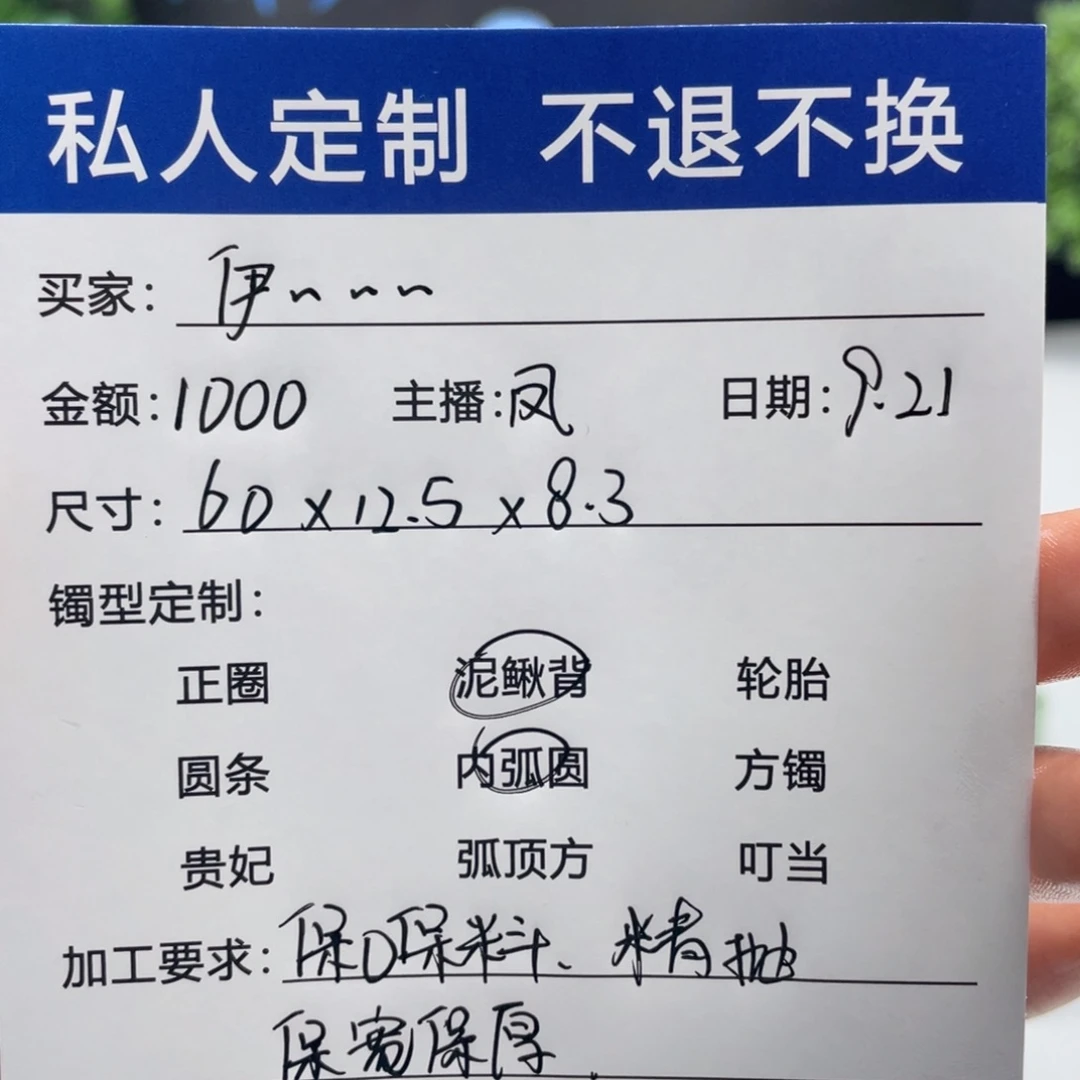 私人定制 不退不换
买家：伊~~~
金额：1000 主播：凤 日期：9.21
尺寸：60×12.5×8.3
镯型定制：
正圈 泥鳅背 轮胎
圆条 内弧圆 方镯
贵妃 弧顶方 叮当
加工要求：保口保料、精抛
保宽保厚.